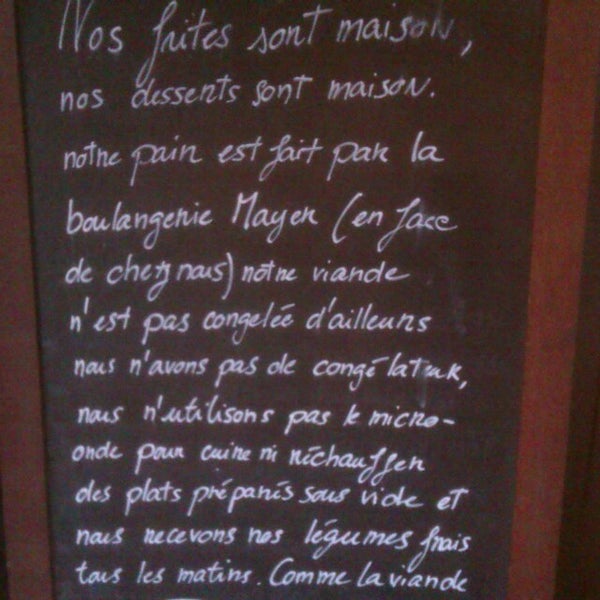 Nos frites sont maison,
nos desserts sont maison.
notre pain est fait par la
boulangerie Mayer (en face
de chez nous) notre viande
n'est pas congelée d'ailleurs
nous n'avons pas de congélateur,
nous n'utilisons pas le micro-
onde pour cuire ni réchauffer
des plats préparés sous vide et
nous recevons nos légumes frais
tous les matins. Comme la viande